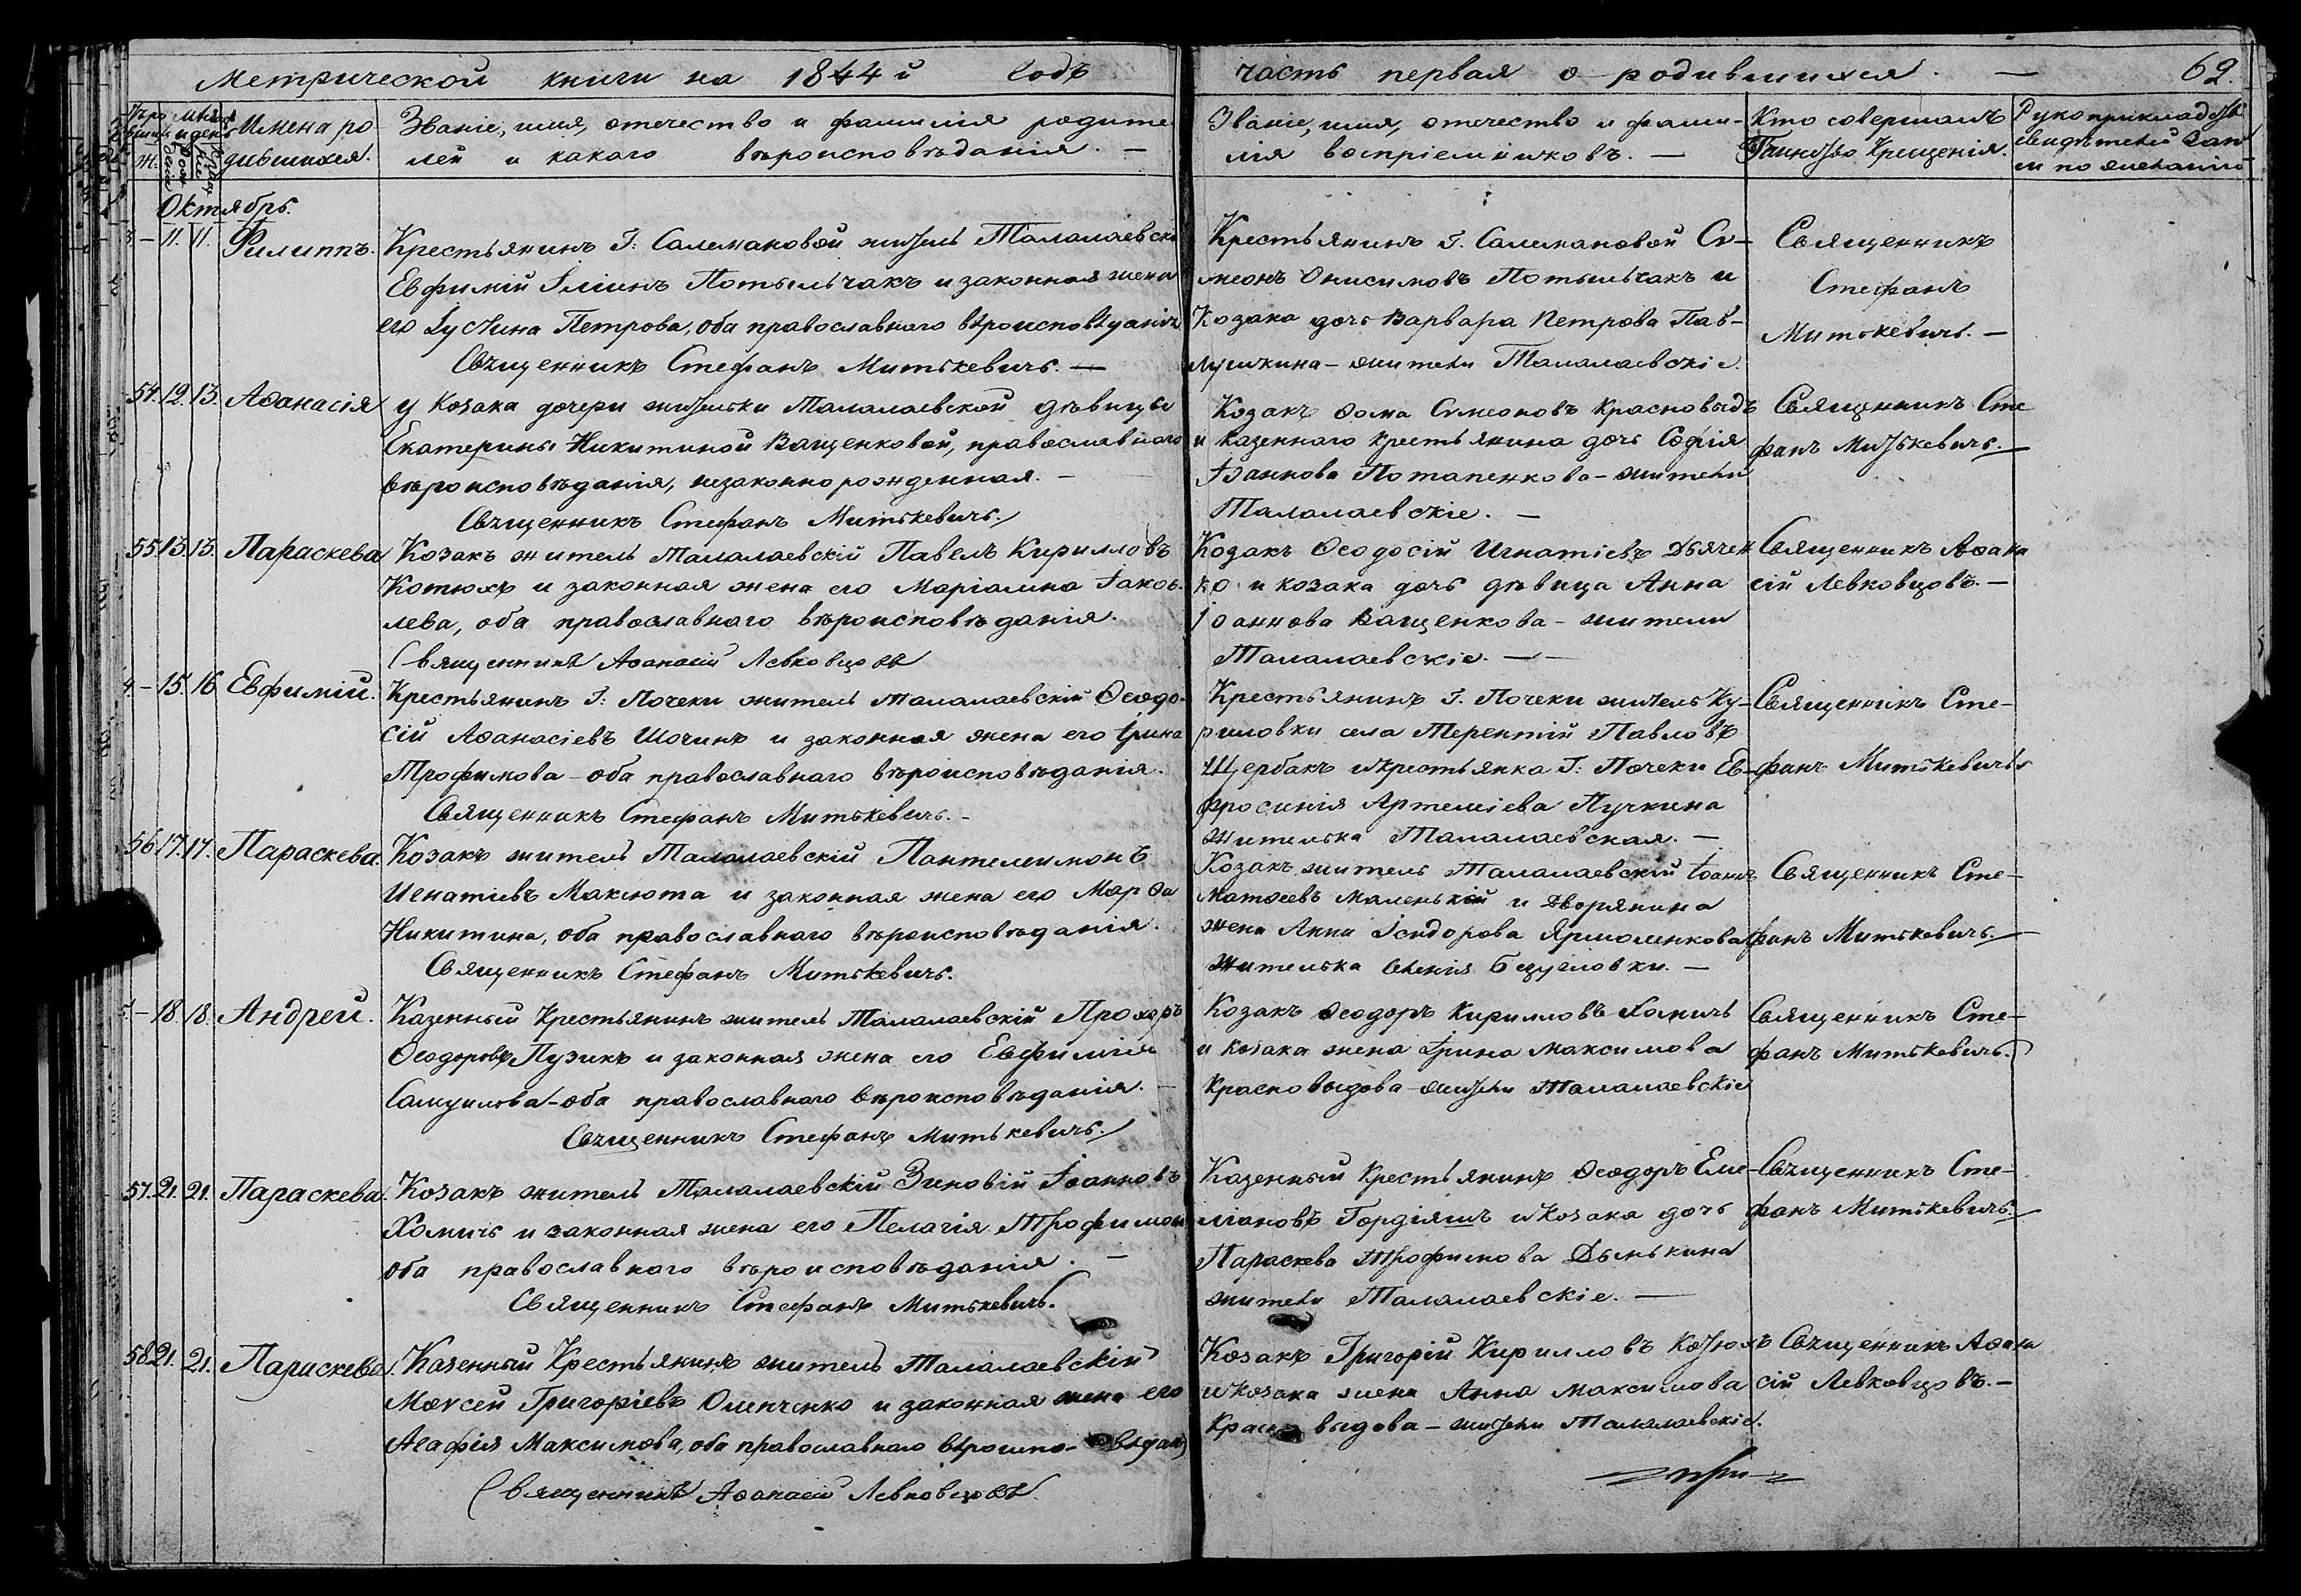 Метрической книги на 1844й годъ
часть первая о родившихся. — 69.
Имена ро
дившихся.
Званіе, имя, отечество и фамилія родите
лей и какого вѣроисповѣданія. —
Званіе, имя, отечество и фами-
лія воспріемниковъ. —
Кто совершалъ
Таинство Крещенія.
Рукоприкладство
свидѣтелей запи
си по желанію
Октябрь.
11. 11. Филиппъ.
Крестьянинъ Г: Салемановой житель Талалаевскі
Евфимій Іліинъ Потыльчакъ и законная жена
его Іустина Петрова, оба православнаго вѣроисповѣданія
Священникъ Стефанъ Митькевичъ. —
Крестьянинъ Г. Салемановой Си-
меонъ Онисимовъ Потыльчакъ и
Козака дочь Варвара Петрова Пав-
лушкина - жители Талалаевскіе.
Священникъ
Стефанъ
Митькевичъ. —
54. 12. 13. Аѳанасія
у Козака дочери жительки Талалаевской дѣвицы
Екатерины Никитиной Ващенковой, православнаго
вѣроисповѣданія, незаконнорожденная. —
Священникъ Стефанъ Митькевичъ.
Козакъ Ѳома Симеоновъ Красновыдъ
и казеннаго крестьянина дочь Софія
Іоаннова Потапенкова - жители
Талалаевскіе. —
Священникъ Сте
фанъ Митькевичъ. —
55 13. 13. Параскева
Козакъ житель Талалаевскій Павелъ Кирилловъ
Котюхъ и законная жена его Маріамна Іаков-
лева, оба православнаго вѣроисповѣданія.
Священникъ Аѳанасій Левковцовъ
Козакъ Ѳеодосій Игнатіевъ Дьячен
ко и козака дочь дѣвица Анна
Іоаннова Ващенкова - жители
Талалаевскіе. —
Священникъ Аѳана
сій Левковцовъ. —
4. - 15. 16 Евфимій.
Крестьянинъ Г: Почеки житель Талалаевскій Ѳеодо-
сій Аѳанасіевъ Шочинъ и законная жена его Ірина
Трофимова - оба православнаго вѣроисповѣданія.
Священникъ Стефанъ Митькевичъ. -
Крестьянинъ Г. Почеки житель Ку-
риловки села Терентій Павловъ
Щербакъ и крестьянка Г: Почеки Ев-
фросинія Артеміева Пучкина
жителька Талалаевская. —
Священникъ Сте-
фанъ Митькевичъ
56. 17. 17. Параскева.
Козакъ житель Талалаевскій Пантелеимонъ
Игнатіевъ Макюта и законная жена его Марѳа
Никитина, оба православнаго вѣроисповѣданія.
Священникъ Стефанъ Митькевичъ.
Козакъ житель Талалаевскій Іоаннъ
Матѳеевъ Маленькій и Дворянина
жена Анна Ісидорова Ярмоленкова
жителька —
Священникъ Сте-
фанъ Митькевичъ. —
5. - 18. 18. Андрей.
Казенный Крестьянинъ житель Талалаевскій Прохоръ
Ѳеодоровъ Пузикъ и законная жена его Евфимія
Самуилова - оба православнаго вѣроисповѣданія. —
Священникъ Стефанъ Митькевичъ.
Козакъ Ѳеодоръ Кирилловъ Хомичъ
и козака жена Ірина Максимова
Красновыдова - жители Талалаевскіе
Священникъ Сте-
фанъ Митькевичъ.
57. 21. 21. Параскева.
Козакъ житель Талалаевскій Зиновій Іоанновъ
Хомичъ и законная жена его Пелагія Трофимова
оба православнаго вѣроисповѣданія. —
Священникъ Стефанъ Митькевичъ.
Казенный Крестьянинъ Ѳеодоръ Еме-
ліановъ Гордіяшъ и козака дочь
Параскева Трофимова Дынькина
жители Талалаевскіе. —
Священникъ Сте-
фанъ Митькевичъ. —
58. 21. 21. Параскева.
Казенный Крестьянинъ житель Талалаевскій
Моѵсей Григоріевъ Оленченко и законная жена его
Агафія Максимова, оба православнаго вѣроиспо-вѣданія
Священникъ Аѳанасій Левковцовъ.
Козакъ Григорій Кирилловъ Котюхъ
и козака жена Анна Максимова
Красновыдова - жители Талалаевскіе.
Священникъ Аѳана
сій Левковцовъ. —